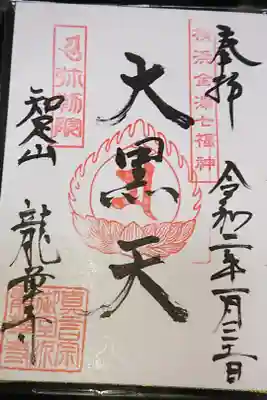 奉拝
横浜金澤七福神
令和二年一月三十一日
大黒天
弥勒院
知足山
龍華寺